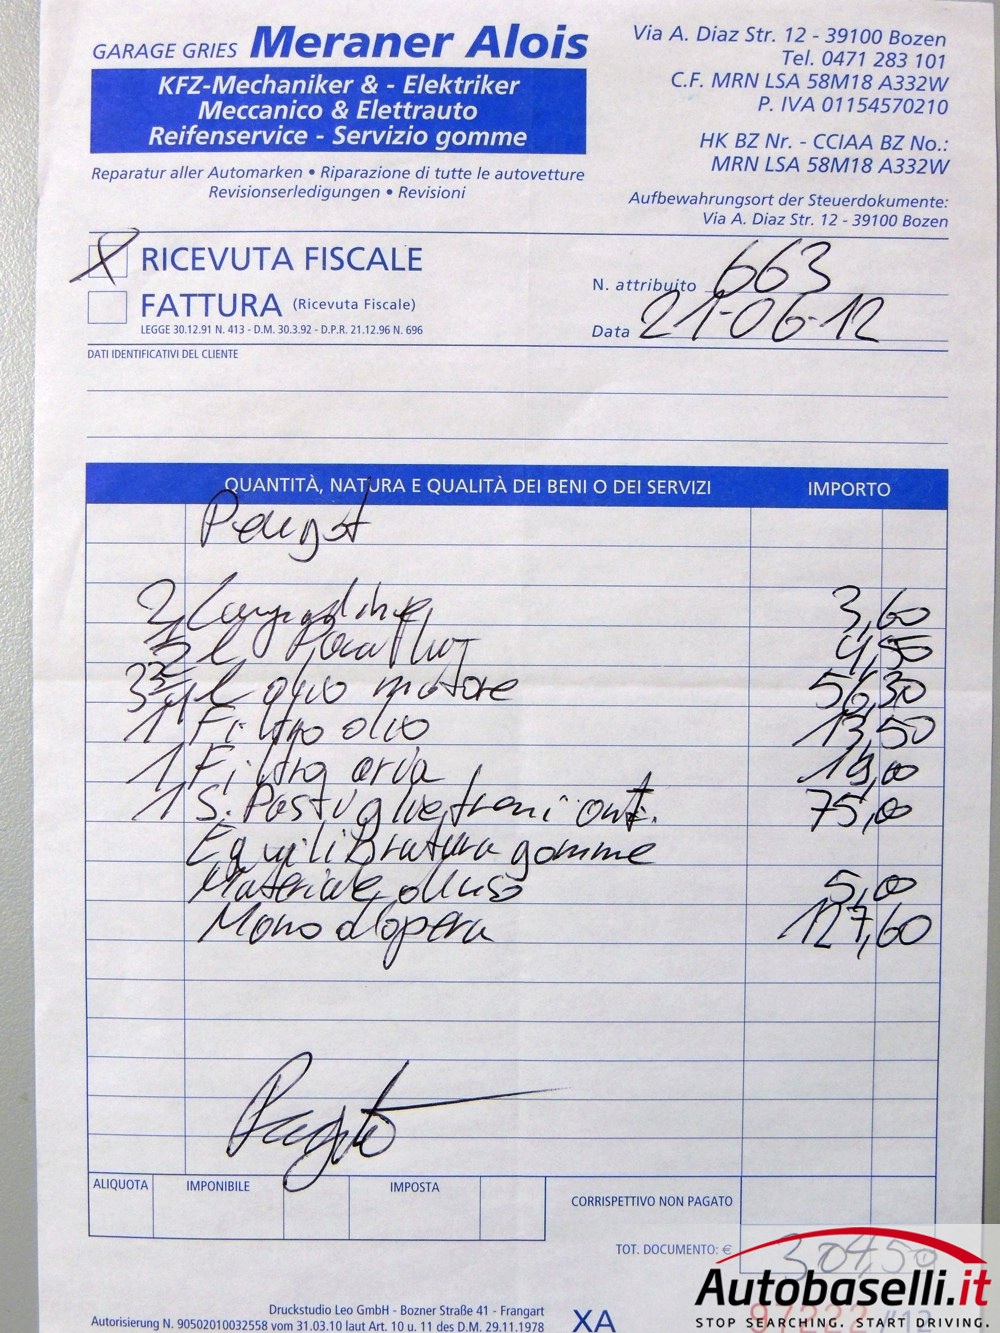 GARAGE GRIES Meraner Alois
KFZ-Mechaniker & - Elektriker
Meccanico & Elettrauto
Reifenservice - Servizio gomme
Reparatur aller Automarken • Riparazione di tutte le autovetture
Revisionserledigungen • Revisioni
Via A. Diaz Str. 12 - 39100 Bozen
Tel. 0471 283 101
C.F. MRN LSA 58M18 A332W
P. IVA 01154570210
HK BZ Nr. - CCIAA BZ No.:
MRN LSA 58M18 A332W
Aufbewahrungsort der Steuerdokumente:
Via A. Diaz Str. 12 - 39100 Bozen
X RICEVUTA FISCALE
FATTURA (Ricevuta Fiscale)
LEGGE 30.12.91 N. 413 - D.M. 30.3.92 - D.P.R. 21.12.96 N. 696
N. attribuito 663
Data 21-06-12
DATI IDENTIFICATIVI DEL CLIENTE
QUANTITÀ, NATURA E QUALITÀ DEI BENI O DEI SERVIZI IMPORTO
Peugot
2 3,60
l 4,50
l olio motore 56,30
1 Filtro olio 13,50
1 Filtro aria 19,00
1 S. Pastiglie freni ant. 75,00
Equilibratura gomme
Materiale d'uso 5,00
Mano d'opera 127,60
Pagato
ALIQUOTA IMPONIBILE IMPOSTA
CORRISPETTIVO NON PAGATO
TOT. DOCUMENTO: € 304,50
Druckstudio Leo GmbH - Bozner Straße 41 - Frangart
Autorisierung N. 90502010032558 vom 31.03.10 laut Art. 10 u. 11 des D.M. 29.11.1978
XA
Autobaselli.it
STOP SEARCHING. START DRIVING.